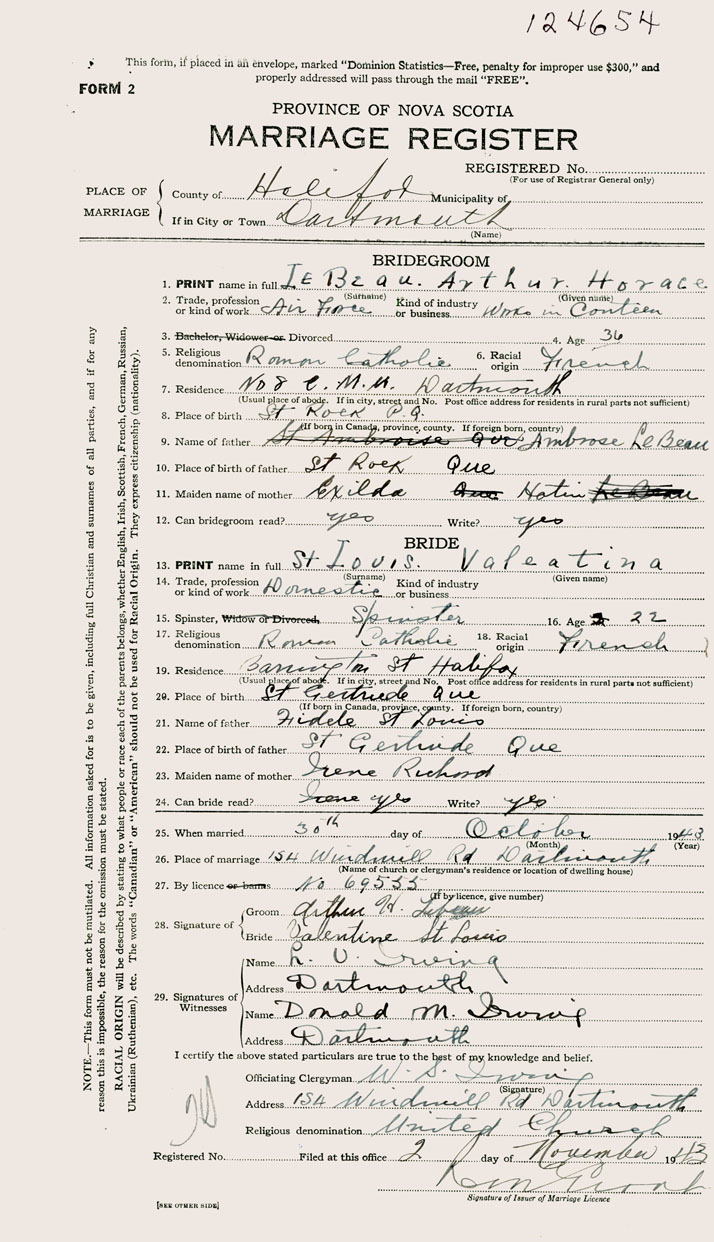 124654
This form, if placed in an envelope, marked “Dominion Statistics—Free, penalty for improper use $300,” and
properly addressed will pass through the mail “FREE”.
FORM 2
PROVINCE OF NOVA SCOTIA
MARRIAGE REGISTER
REGISTERED No.
(For use of Registrar General only)
PLACE OF MARRIAGE
County of Halifax Municipality of
If in City or Town Dartmouth
(Name)
BRIDEGROOM
1. PRINT name in full LeBeau. Arthur. Horace
(Surname) (Given name)
2. Trade, profession or kind of work Air Force Kind of industry or business Works in Canteen
3. Bachelor, Widower or Divorced 4. Age 36
5. Religious denomination Roman Catholic 6. Racial origin French
7. Residence No 8 C. M. U. Dartmouth
(Usual place of abode. If in city, street and No. Post office address for residents in rural parts not sufficient)
8. Place of birth St Rock P.Q.
(If born in Canada, province, county. If foreign born, country)
9. Name of father St Ambroise Que Ambrose LeBeau
10. Place of birth of father St Rock Que
11. Maiden name of mother Exilda Que Hotin LeBeau
12. Can bridegroom read? yes Write? yes
BRIDE
13. PRINT name in full St Louis. Valeatina
(Surname) (Given name)
14. Trade, profession or kind of work Domestic Kind of industry or business
15. Spinster, Widow or Divorced, Spinster 16. Age 22
17. Religious denomination Roman Catholic 18. Racial origin French
19. Residence Barrington St Halifax
(Usual place of abode. If in city, street and No. Post office address for residents in rural parts not sufficient)
20. Place of birth St Gertrude Que
(If born in Canada, province, county. If foreign born, country)
21. Name of father Fidele St Louis
22. Place of birth of father St Gertrude Que
23. Maiden name of mother Irene Richard
24. Can bride read? Irene yes Write? yes
25. When married 30th day of October 1943
(Month) (Year)
26. Place of marriage 154 Windmill Rd Dartmouth
(Name of church or clergyman's residence or location of dwelling house)
27. By licence or banns No 69555
(If by licence, give number)
28. Signature of
Groom Arthur H. Lebeau
Bride Valentine St. Louis
29. Signatures of Witnesses
Name L. V. Irving
Address Dartmouth
Name Donald M. Irving
Address Dartmouth
I certify the above stated particulars are true to the best of my knowledge and belief.
Officiating Clergyman W. S. Irving
(Signature)
Address 154 Windmill Rd Dartmouth
Religious denomination United Church
Registered No. Filed at this office 2 day of November 1943
Signature of Issuer of Marriage Licence
[SEE OTHER SIDE]
NOTE.—This form must not be mutilated. All information asked for is to be given, including full Christian and surnames of all parties, and if for any
reason this is impossible, the reason for the omission must be stated.
RACIAL ORIGIN will be described by stating to what people or race each of the parents belongs, whether English, Irish, Scottish, French, German, Russian,
Ukrainian (Ruthenian), etc. The words “Canadian” or “American” should not be used for Racial Origin. They express citizenship (nationality).